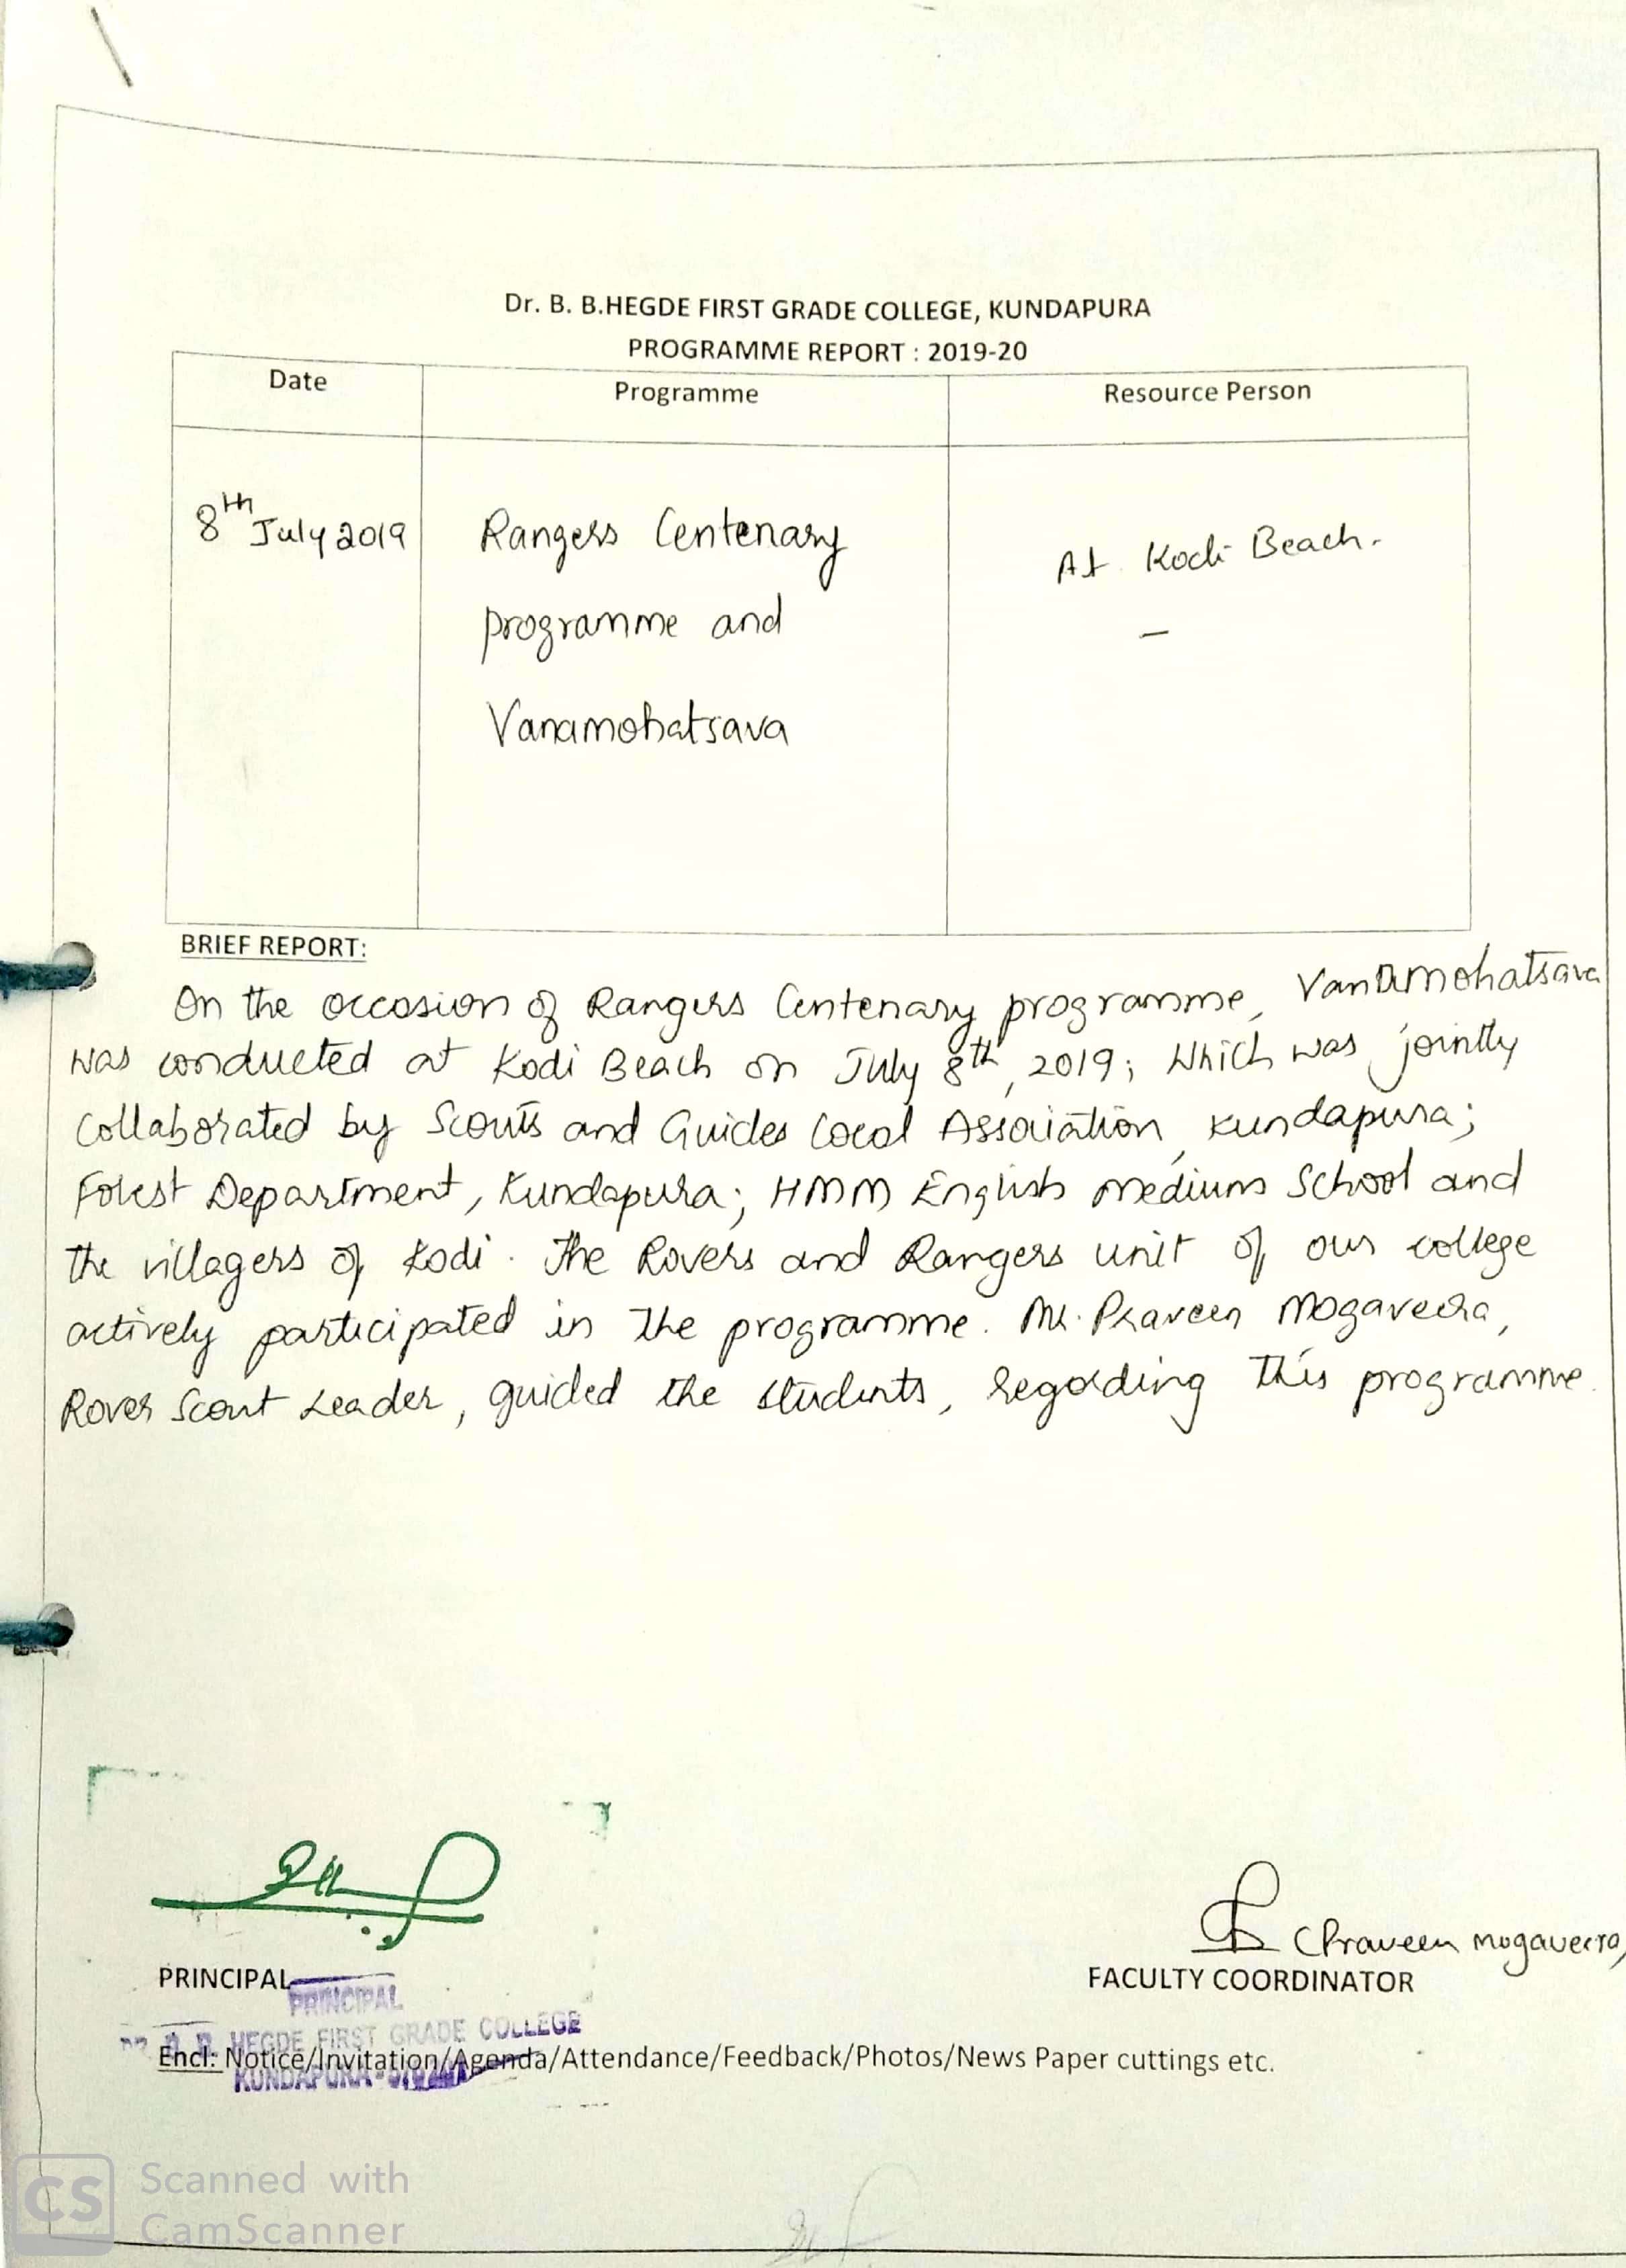 Dr. B. B.HEGDE FIRST GRADE COLLEGE, KUNDAPURA
PROGRAMME REPORT : 2019-20
Date Programme Resource Person
8th July 2019 Rangers Centenary At Kodi Beach.
programme and –
Vanamohatsava
BRIEF REPORT:
On the occasion of Rangers Centenary programme, Vanamohatsava
was conducted at Kodi Beach on July 8th, 2019; which was jointly
collaborated by Scouts and Guides Local Association, Kundapura;
Forest Department, Kundapura; HMM English medium School and
the villagers of Kodi. The Rovers and Rangers unit of our college
actively participated in the programme. Mr. Praveen Mogaveera,
Rover Scout Leader, guided the students, regarding this programme.
(Praveen Mogaveera)
PRINCIPAL FACULTY COORDINATOR
PRINCIPAL
DR. B. B. HEGDE FIRST GRADE COLLEGE
Encl: Notice/Invitation/Agenda/Attendance/Feedback/Photos/News Paper cuttings etc.
KUNDAPURA
CS Scanned with
CamScanner